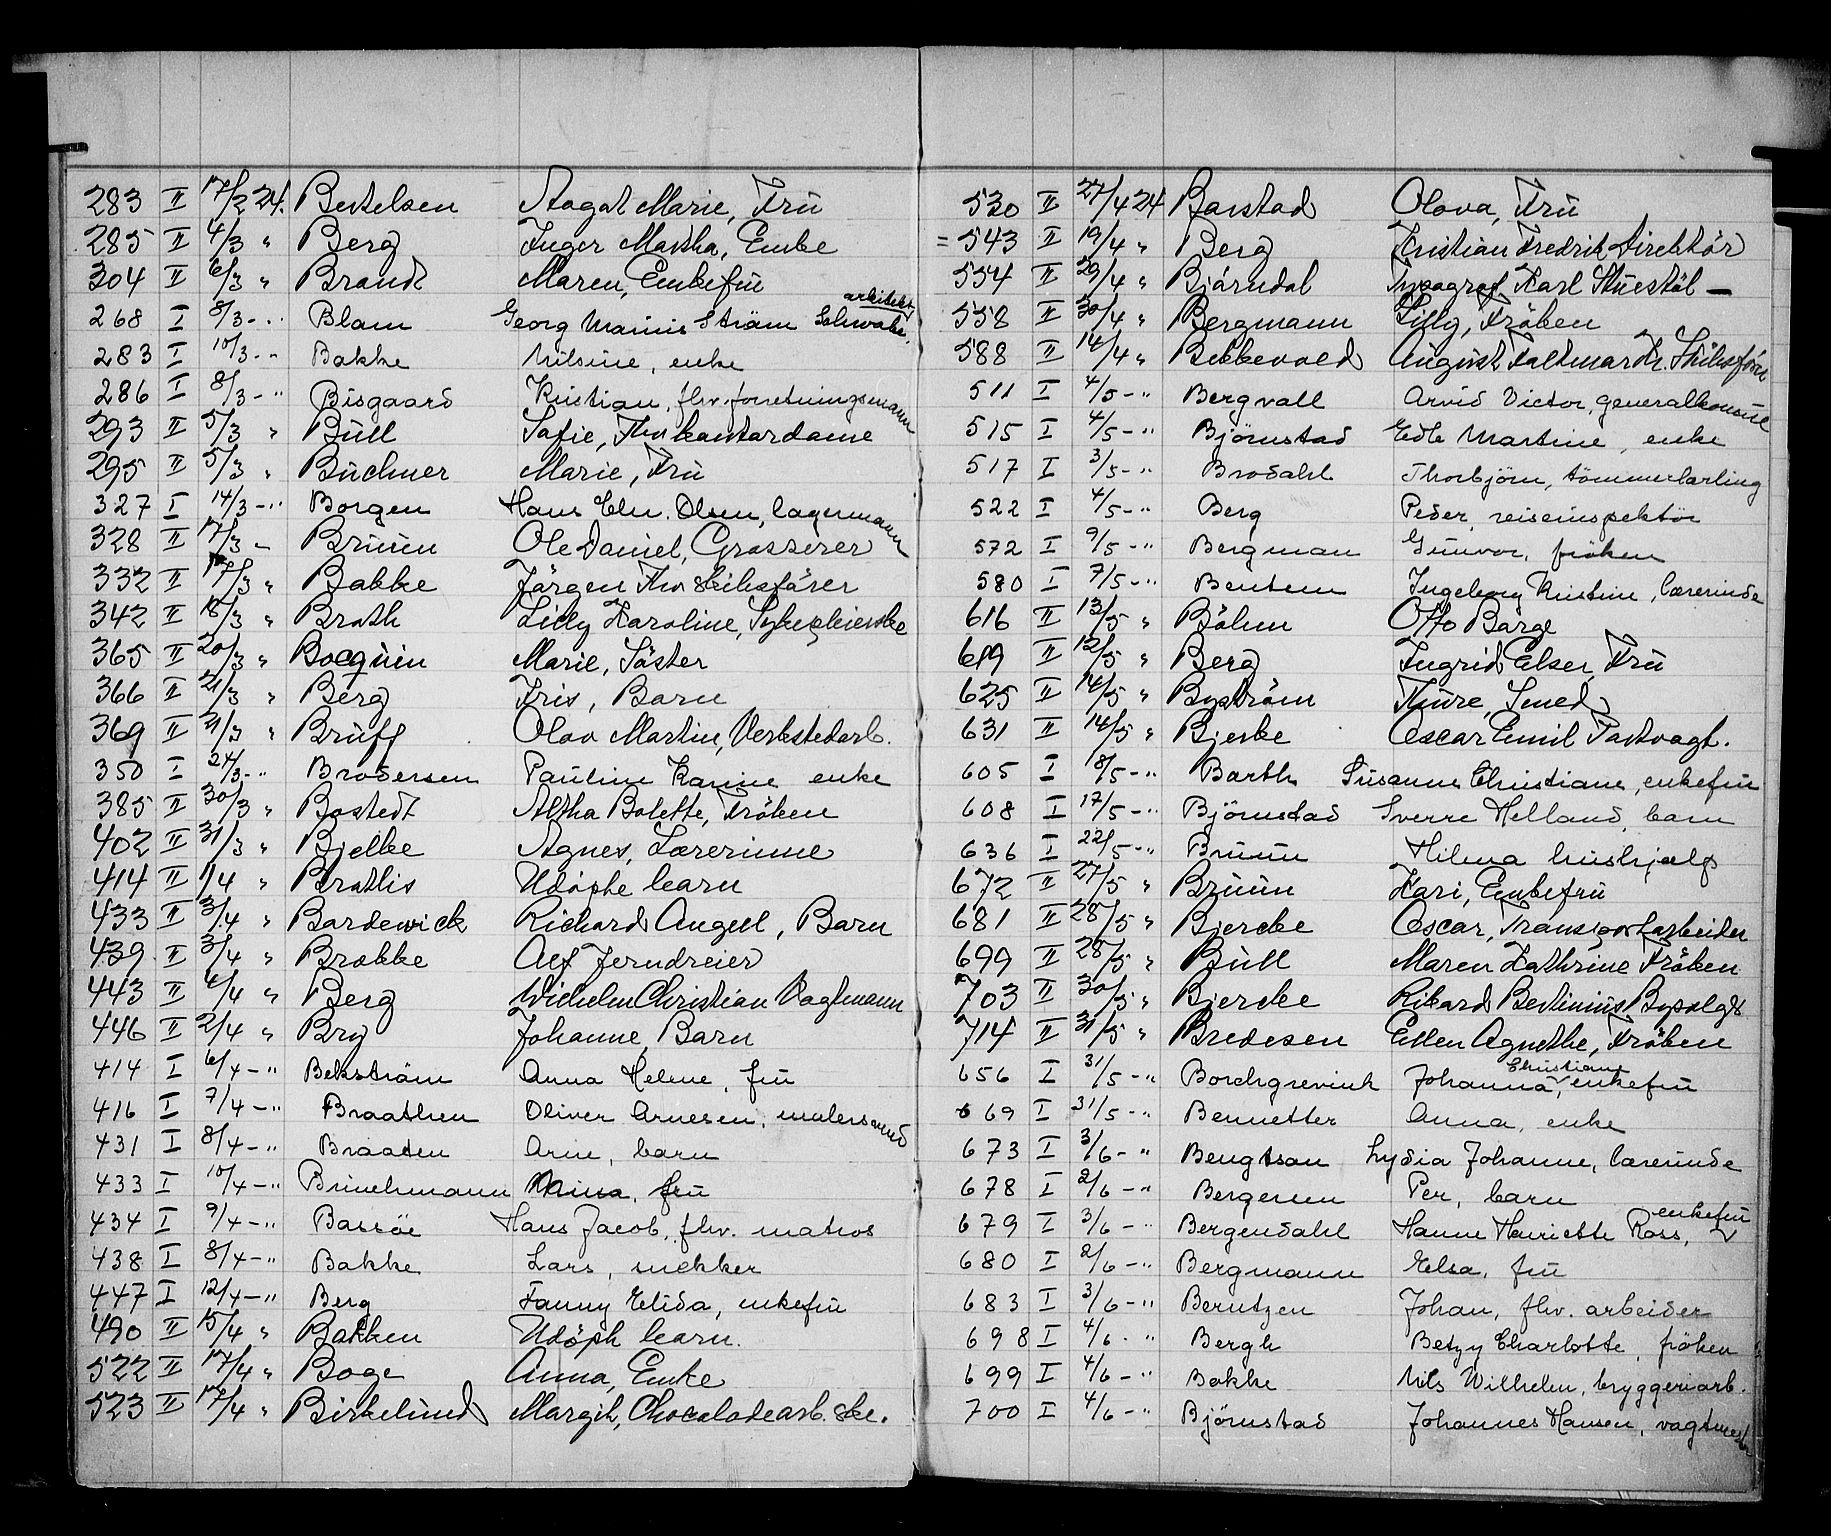 283 II 17/2 24. Bertelsen Aagot Marie, Fru
285 II 4/3 " Berg Inger Martha, Enke
304 II 6/3 " Brandt Maren, Enkefru
268 I 8/3 - " Blam Georg Marinis Strøm Schwabe, arkitekt
283 I 10/3 - " Bakke Nilsine, enke
286 I 8/3 - " Bisgaard Kristian, fhv. forretningsmann
293 II 5/3 " Bull Sofie, Fhv kontordame
295 II 5/3 " Buchner Marie, Fru
327 I 14/3 - " Borgen Hans Eln. Olsen, lagermann
328 II 17/3 - Bruun Ole Daniel, Grosserer
332 II 17/3 " Bakke Jörgen Fhv skibsförer
342 II 18/3 " Brath Lilly Karoline, Sykepleierske
365 II 20/3 " Bocquin Marie, Söster
366 II 21/3 " Berg Iris, Barn
369 II 21/3 " Bruff Olav Martin, Verkstedarb.
350 I 24/3 - " Brodersen Pauline Karine enke
385 II 30/3 " Bostedt Altha Bolette, Fröken
402 II 31/3 " Bjelke Agnes, Lærerinne
414 II 1/4 " Brathis Udöpte barn
433 II 3/4 " Bardewick Richard Angell, Barn
439 II 3/4 " Brække Alf Jerndreier
443 II 4/4 " Berg Wilhelm Christian Vagtmann
446 II 2/4 " Bry Johanne, Barn
414 I 6/4 - " Bekström Anna Helene, fru
416 I 7/4 - " Braathen Oliver Arnesen, malersvend
431 I 8/4 - " Braaten Arne, barn
433 I 10/4 - " Brinchmann Minna, fru
434 I 9/4 - " Bassöe Hans Jacob, fhv. matros
438 I 8/4 - " Bakke Lars, snekker
447 I 12/4 - " Berg Fanny Elida, enkefru
490 II 15/4 " Bakken Udöpt barn.
522 II 17/4 " Boge Anna, Enke
523 II 17/4 " Birkelund Margit, Chocoladearb.ske.
530 II 27/4 24 Barstad Olova, Fru
= 543 II 19/4 " Berg Kristian Fredrik Direktör
554 II 29/4 " Björndal Typograf Karl Stuestöl -
558 II 30/4 " Bergmann Lilly, Fröken
588 II 14/4 " Bekkevold August Valdmar Fhv. Skibsförer
511 I 4/5 - " Bergvall Arvid Victor, generalkonsul
515 I 4/5 - " Björnstad Edle Martine, enke
517 I 3/5 - " Brodahl Thorbjörn, tömmerlærling
522 I 4/5 - " Berg Peder, reiseinspektör
572 I 9/5 - " Bergman Gunvor, fröken
580 I 7/5 - " Bentsen Ingeborg Kristine, lærerinde
616 II 13/5 " Böhm Otto Barge
619 II 12/5 " Berg Ingrid Elser, Fru
625 II 14/5 " Byström Thure, Smed
631 II 14/5 " Bjerke Oscar Emil Parkvagt.
605 I 18/5 - " Barth Susanne Christiane, enkefru
608 I 17/5 - " Björnstad Sverre Helland, barn
636 I 22/5 - " Bruun Hilma hushjælp
672 II 27/5 " Bruun Kari, Enkefru
681 II 28/5 " Bjercke Oscar, Transportarbeider
699 II 28/5 " Bull Maren Kathrine Fröken
703 II 30/5 " Bjercke Rikard Bertinius Bypolgs
714 II 31/5 " Bredesen Ellen Agnethe, Fröken
656 I 31/5 - " Borchgrevink Johanna Christiane, enkefru
669 I 31/5 - " Bennetter Anna, enke
673 I 3/6 - " Bengtson Lydia Johanne, lærerinde
678 I 2/6 - " Bergersen Per, barn
679 I 3/6 - " Bergendahl Hanne Henriette Ross, enkefru
680 I 2/6 - " Bergmann Elsa, fru
683 I 3/6 - " Berntzen Johan, fhv. arbeider
698 I 4/6 - " Bergh Betzy Charlotte, fröken
699 I 4/6 - " Bakke Nils Wilhelm, bryggeriarb.
700 I 4/6 - " Björnstad Johannes Hansen, vagtmester